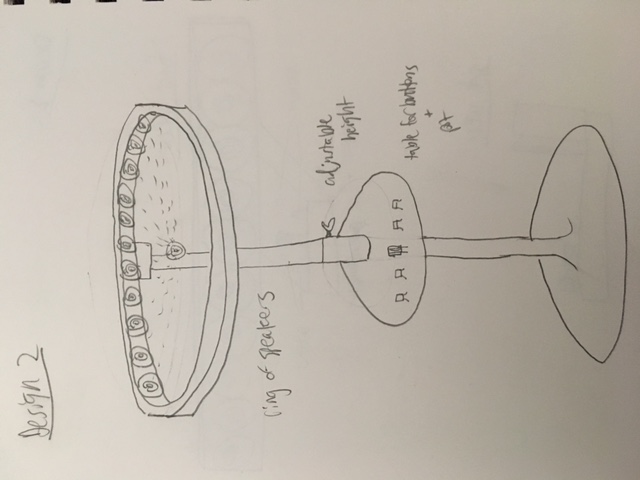 Design 2
ring of speakers
adjustable
height
table for buttons
+
pot